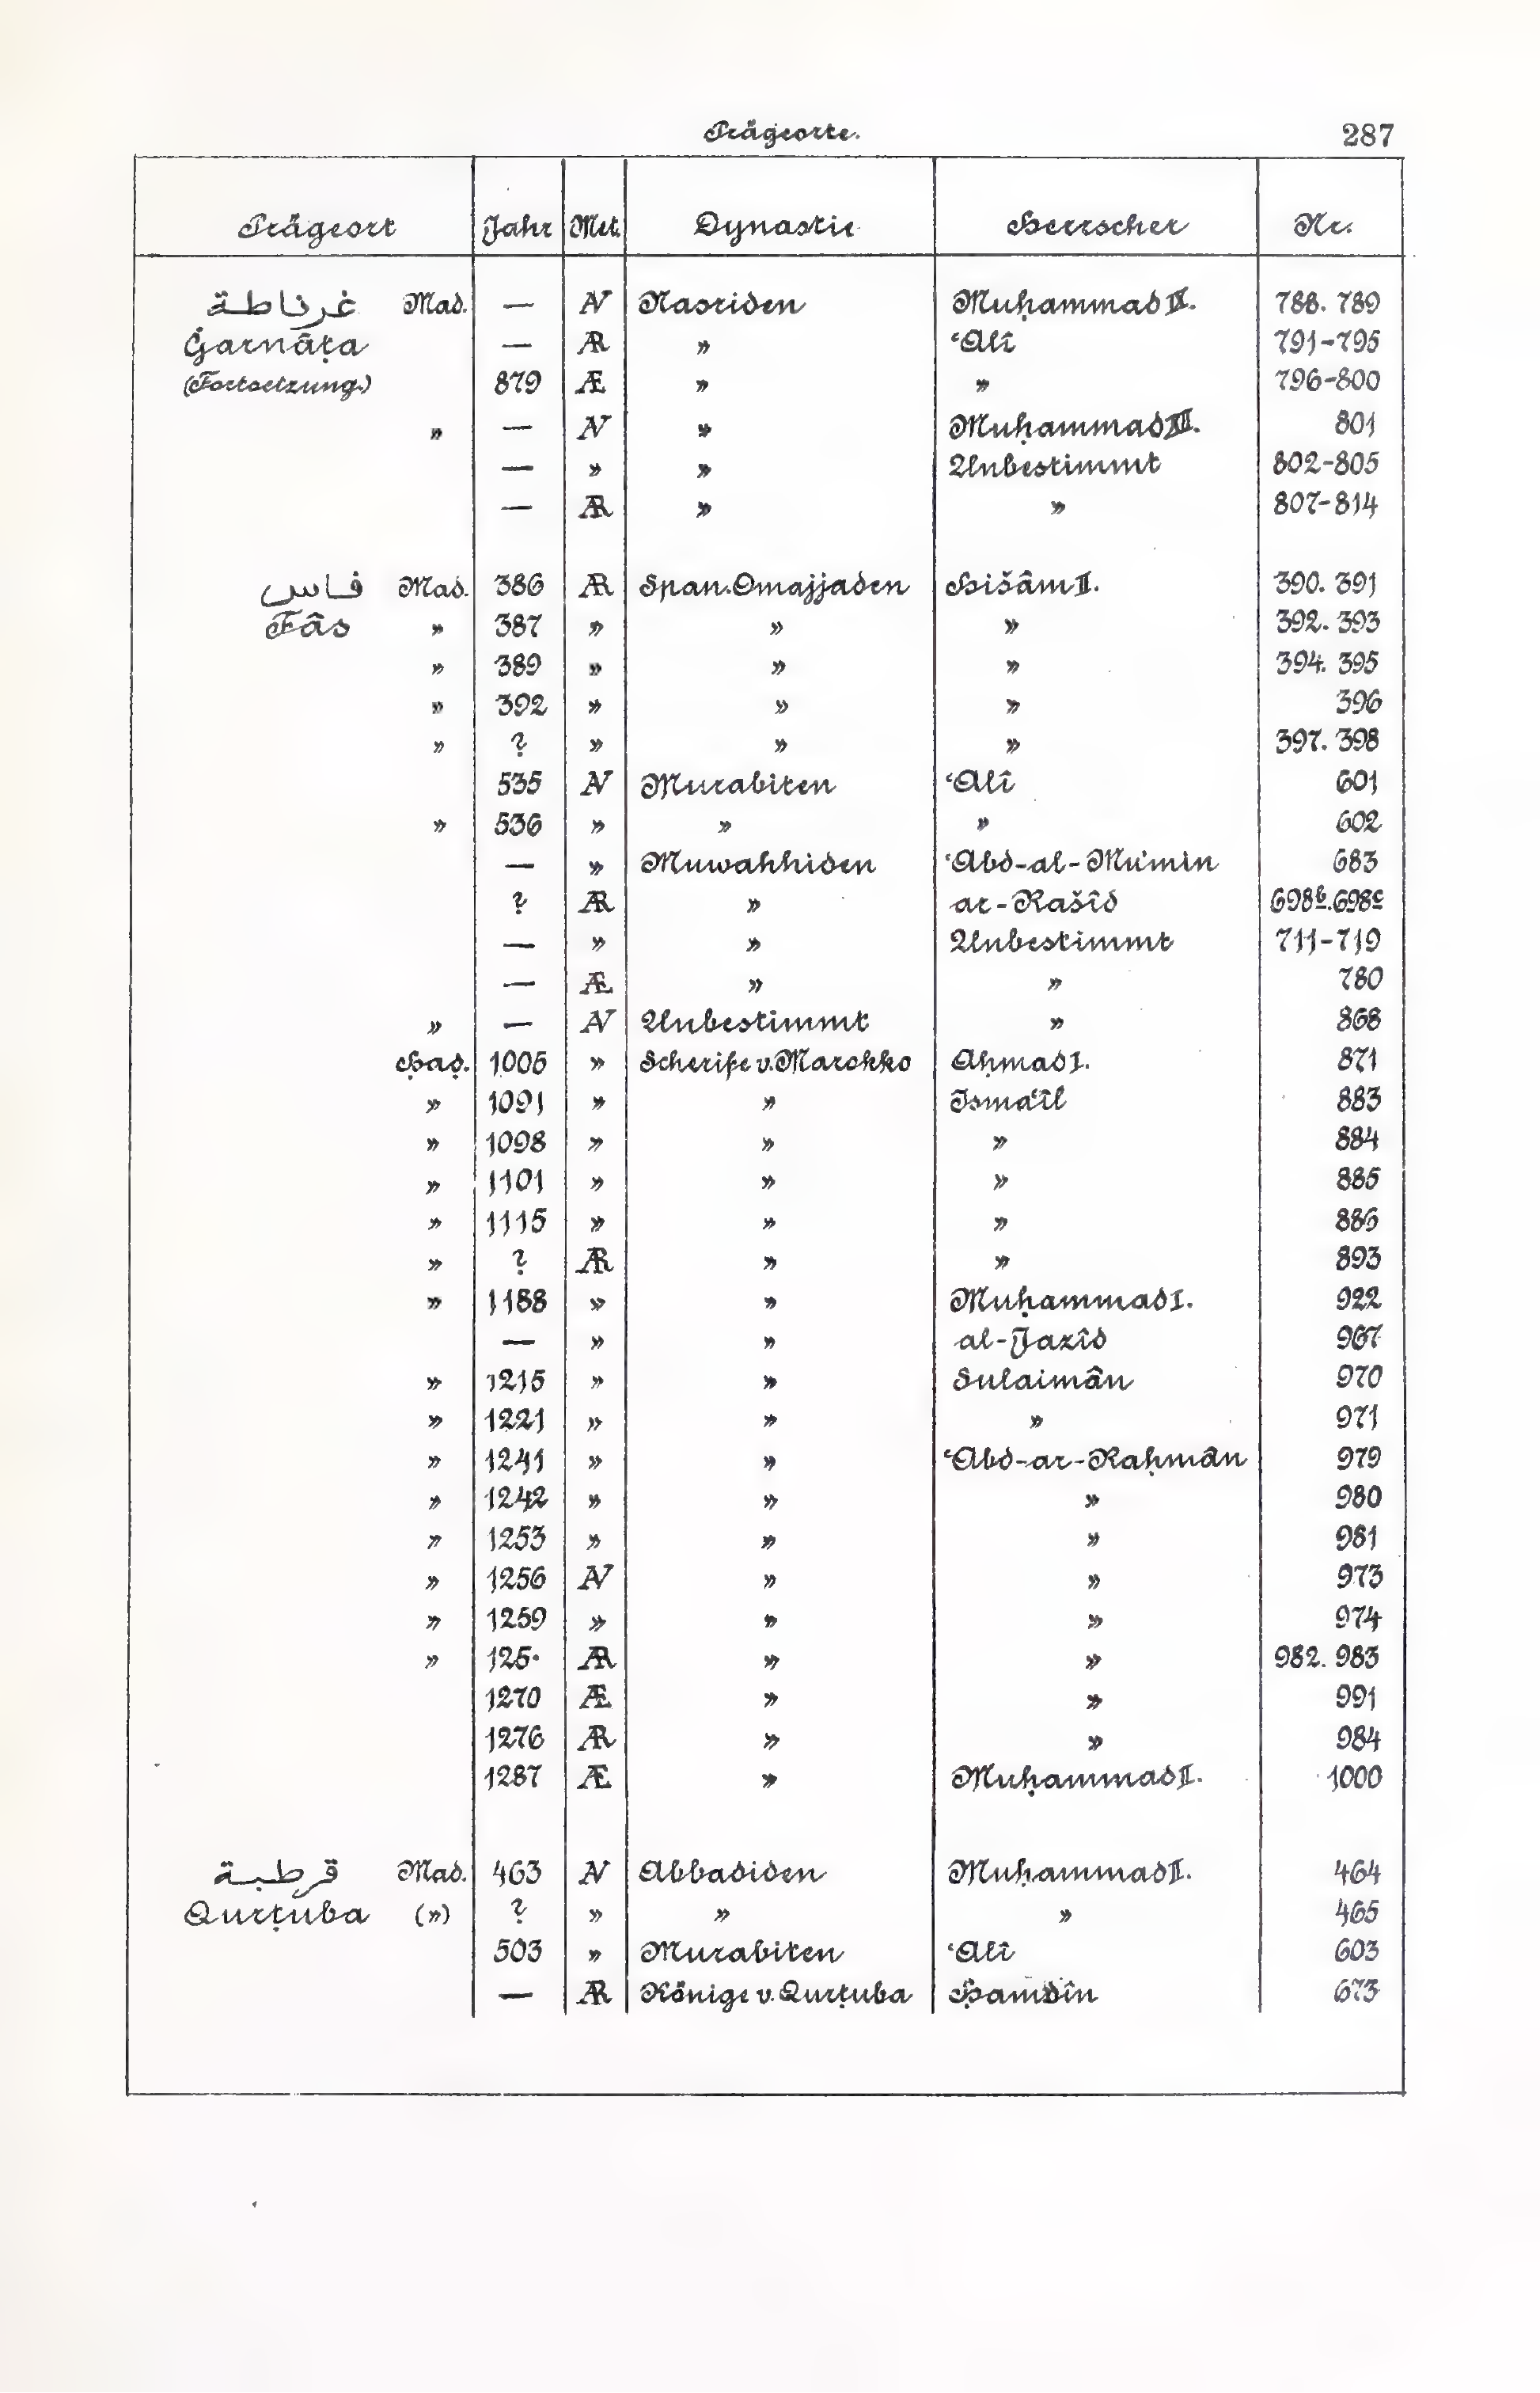 Prägeorte.
287
Prägeort Jahr Met. Dynastie Herrscher Nr.
غرناطة Mad. — AV Nasriden Muḥammad 788. 789
Ġarnāṭa — AR » ʿAlî 791-795
(Fortsetzung.) 879 Æ » » 796-800
» — AV » Muḥammad 801
— » » Unbestimmt 802-805
— AR » » 807-814
فاس Mad. 386 AR Span. Omajjaden Hišâm II. 390. 391
Fâs » 387 » » » 392. 393
» 389 » » » 394. 395
» 392 » » » 396
» ? » » » 397. 398
535 AV Murabiten ʿAlî 601
» 536 » » » 602
— » Muwahhiden ʿAbd-al-Mu'min 683
? AR » ar-Rašîd 698b. 698c
— » » Unbestimmt 711-719
— Æ » » 780
» — AV Unbestimmt » 868
Ḥaḍ. 1005 » Scherife v. Marokko Aḥmad I. 871
» 1091 » » Ismaʿîl 883
» 1098 » » » 884
» 1101 » » » 885
» 1115 » » » 886
» ? AR » » 893
» 1188 » » Muḥammad I. 922
— » » al-Jazîd 967
» 1215 » » Sulaimân 970
» 1221 » » » 971
» 1241 » » ʿAbd-ar-Raḥmân 979
» 1242 » » » 980
» 1253 » » » 981
» 1256 AV » » 973
» 1259 » » » 974
» 125· AR » » 982. 983
1270 Æ » » 991
1276 AR » » 984
1287 Æ » Muḥammad II. 1000
قرطبة Mad. 463 AV Abbadiden Muḥammad II. 464
Qurṭuba (») ? » » » 465
503 » Murabiten ʿAlî 603
— AR Könige v. Qurṭuba Ḥamdîn 673